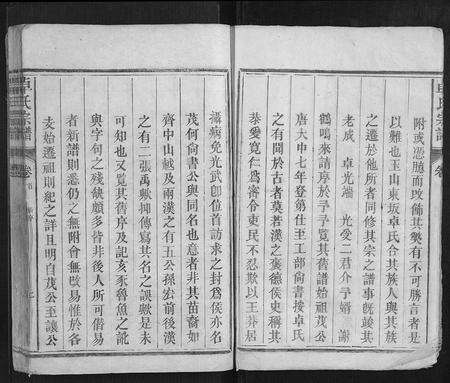 附或憑臆而改飾其獘有不可勝言者是
以難也玉山東坂卓氏合其族人與其族
之遷於他所者同修其宗之譜事旣竣其
老成 卓光端 光受二君介予婿 謝
鶴鳴來請序於予予覧其舊譜始祖茂公
唐大中七年登第仕至工部尙書按卓氏
之有聞於古者莫若漢之褒德侯史稱其
恭愛寛仁爲密令吏民不忍欺以王莽居
攝病免光武卽位首訪求之封爲侯亦名
茂何尙書公與同名也意者非其苗裔如
齊中山越及兩漢之有五公孫㢠前後漢
之有二張禹歟抑傳寫其名之誤歟是未
可知也又覧其舊序及記亥豕魯魚之訛
與字句之殘缺頗多皆非後人所可僣易
者新譜則悉仍之無附會無改易惟於各
支始遷祖則紀之詳且明自茂公至讓公
卓氏宗譜
卷
卓氏宗譜
卷